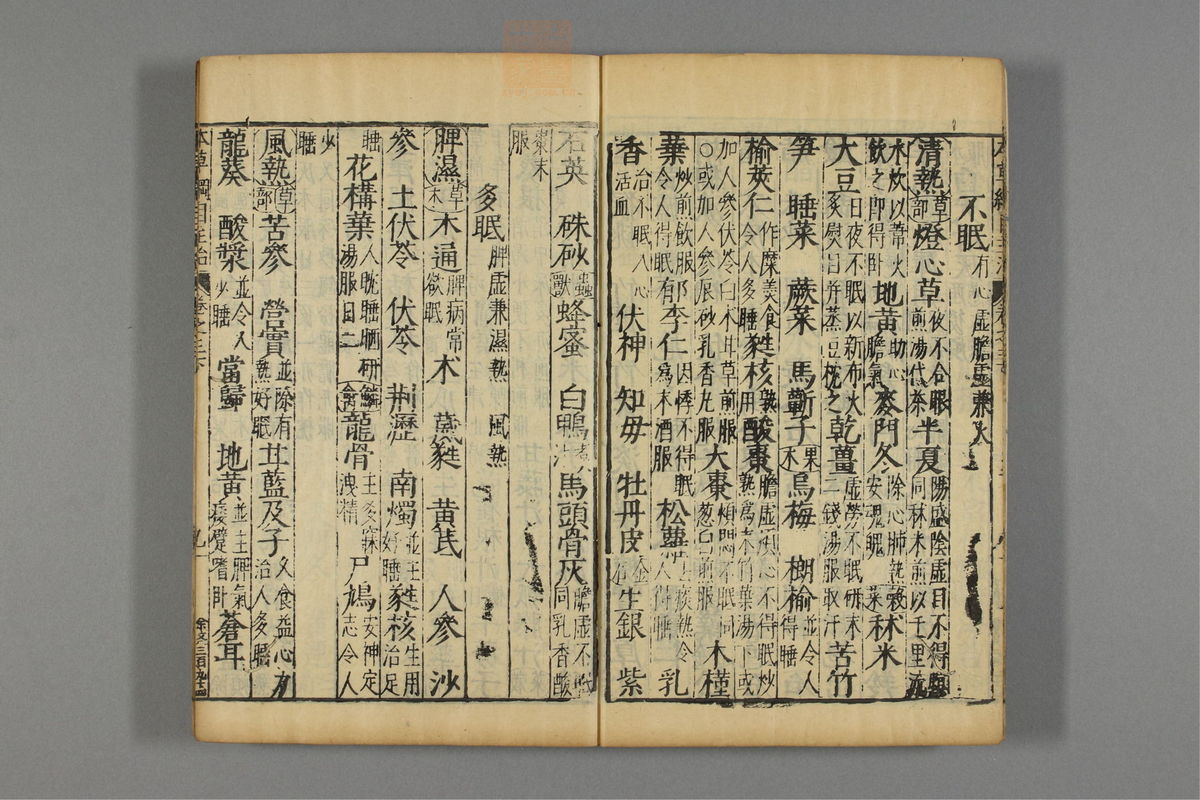 不眠有心虛膽虛兼火
清熱草部燈心草夜不合眼煎湯代茶半夏陽盛陰虛目不得瞑同秫米煎以千里流
水炊以葦火飲之即得卧地黃助心膽氣麥門冬除心肺熱安魂魄穀菜秫米
大豆日夜不眠以新布火炙熨目并蒸豆枕之乾薑虛勞不眠研末二錢湯服取汗苦竹
笋 睡菜 蕨菜 馬蘄子果木烏梅 榔榆並令人得睡
榆莢仁作糜羹食令人多睡蕤核熟用酸棗膽虛煩心不得眠炒熟爲末竹葉湯下或
加人參伏苓白木甘草煎服○或加人參辰砂乳香丸服大棗煩悶不眠同葱白煎服木槿
葉炒煎飲服令人得眠郁李仁因悸不得眠爲末酒服松蘿去痰熱令人得睡乳
香治不眠入心活血伏神 知母 牡丹皮金石生銀 紫
石英 硃砂蟲獸蜂蜜 白鴨煮汁馬頭骨灰膽虛不眠同乳香酸
棗末服
多眠脾虛兼濕熱 風熱
脾濕草木木通脾病常欲眠术 葳蕤 黃芪 人參 沙
參 土伏苓 伏苓 荆瀝 南燭並主好睡蕤核生用治足
睡花構葉人眈睡晒研湯服日二鱗禽龍骨主多寐洩精尸鳩安神定志令人
少睡
風熱草部苦參 營實並除有熱好眠甘藍及子久食益心力治人多睡
龍葵 酸漿並令人少睡當歸 地黃並主脾氣痿躄嗜卧蒼耳
本草綱目主治